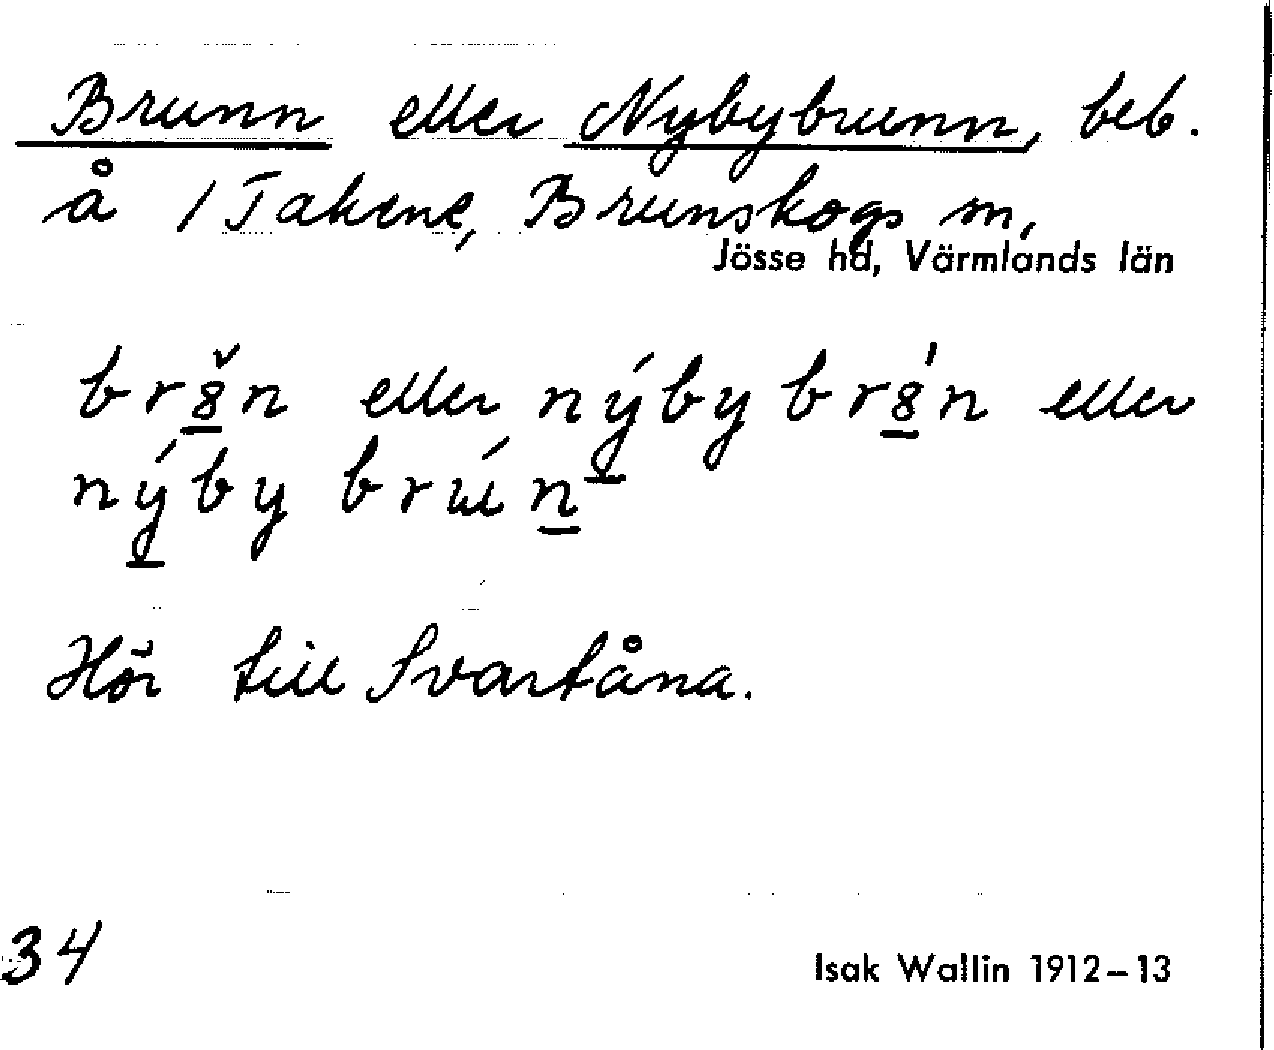 Brunn eller Nybybrunn, beb.
å 1 Takene, Brunskogs sn,
Jösse hd, Värmlands län
br8̲̌n eller ný̲bybr8̲́n eller
ný̲by brún̲
Hör till Svartåna.
34
Isak Wallin 1912–13